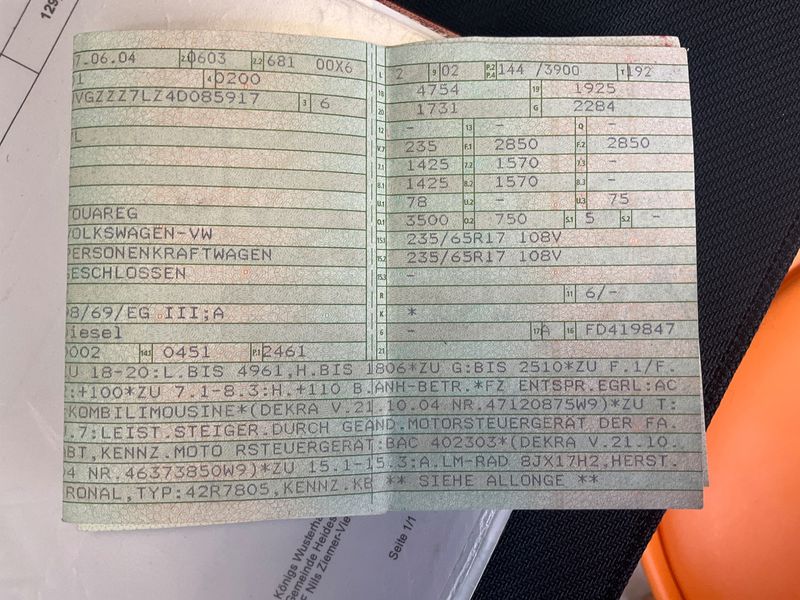 129
7.06.04 2.1 0603 2.2 681 00X6
4 0200
VGZZZ7LZ4D085917 3 6
OUAREG
OLKSWAGEN-VW
ERSONENKRAFTWAGEN
ESCHLOSSEN
/69/EG III;A
iesel
0002 14.1 0451 P.1 2461
L 2 9 02 P.2 P.4 144 /3900 T 192
18 4754 19 1925
20 1731 G 2284
12 - 13 - Q -
V.7 235 F.1 2850 F.2 2850
7.1 1425 7.2 1570 7.3 -
8.1 1425 8.2 1570 8.3 -
U.1 78 U.2 - U.3 75
O.1 3500 O.2 750 S.1 5 S.2 -
15.1 235/65R17 108V
15.2 235/65R17 108V
15.3 -
R 11 6/-
K *
6 - 17 A 16 FD419847
21
ZU 18-20:L.BIS 4961,H.BIS 1806*ZU G:BIS 2510*ZU F.1/F.
:+100*ZU 7.1-8.3:H.+110 B.ANH-BETR.*FZ ENTSPR.EGRL:AC
KOMBILIMOUSINE*(DEKRA V.21.10.04 NR.47120875W9)*ZU T:
.7:LEIST.STEIGER.DURCH GEAND.MOTORSTEUERGERÄT DER FA.
ABT,KENNZ.MOTO RSTEUERGERÄT:BAC 402303*(DEKRA V.21.10.
04 NR.46373850W9)*ZU 15.1-15.3:A.LM-RAD 8JX17H2,HERST.
RONAL,TYP:42R7805,KENNZ.KB ** SIEHE ALLONGE **
Königs Wusterha
Gemeinde Heides
F Nils Ziemer-Vie
Seite 1/1